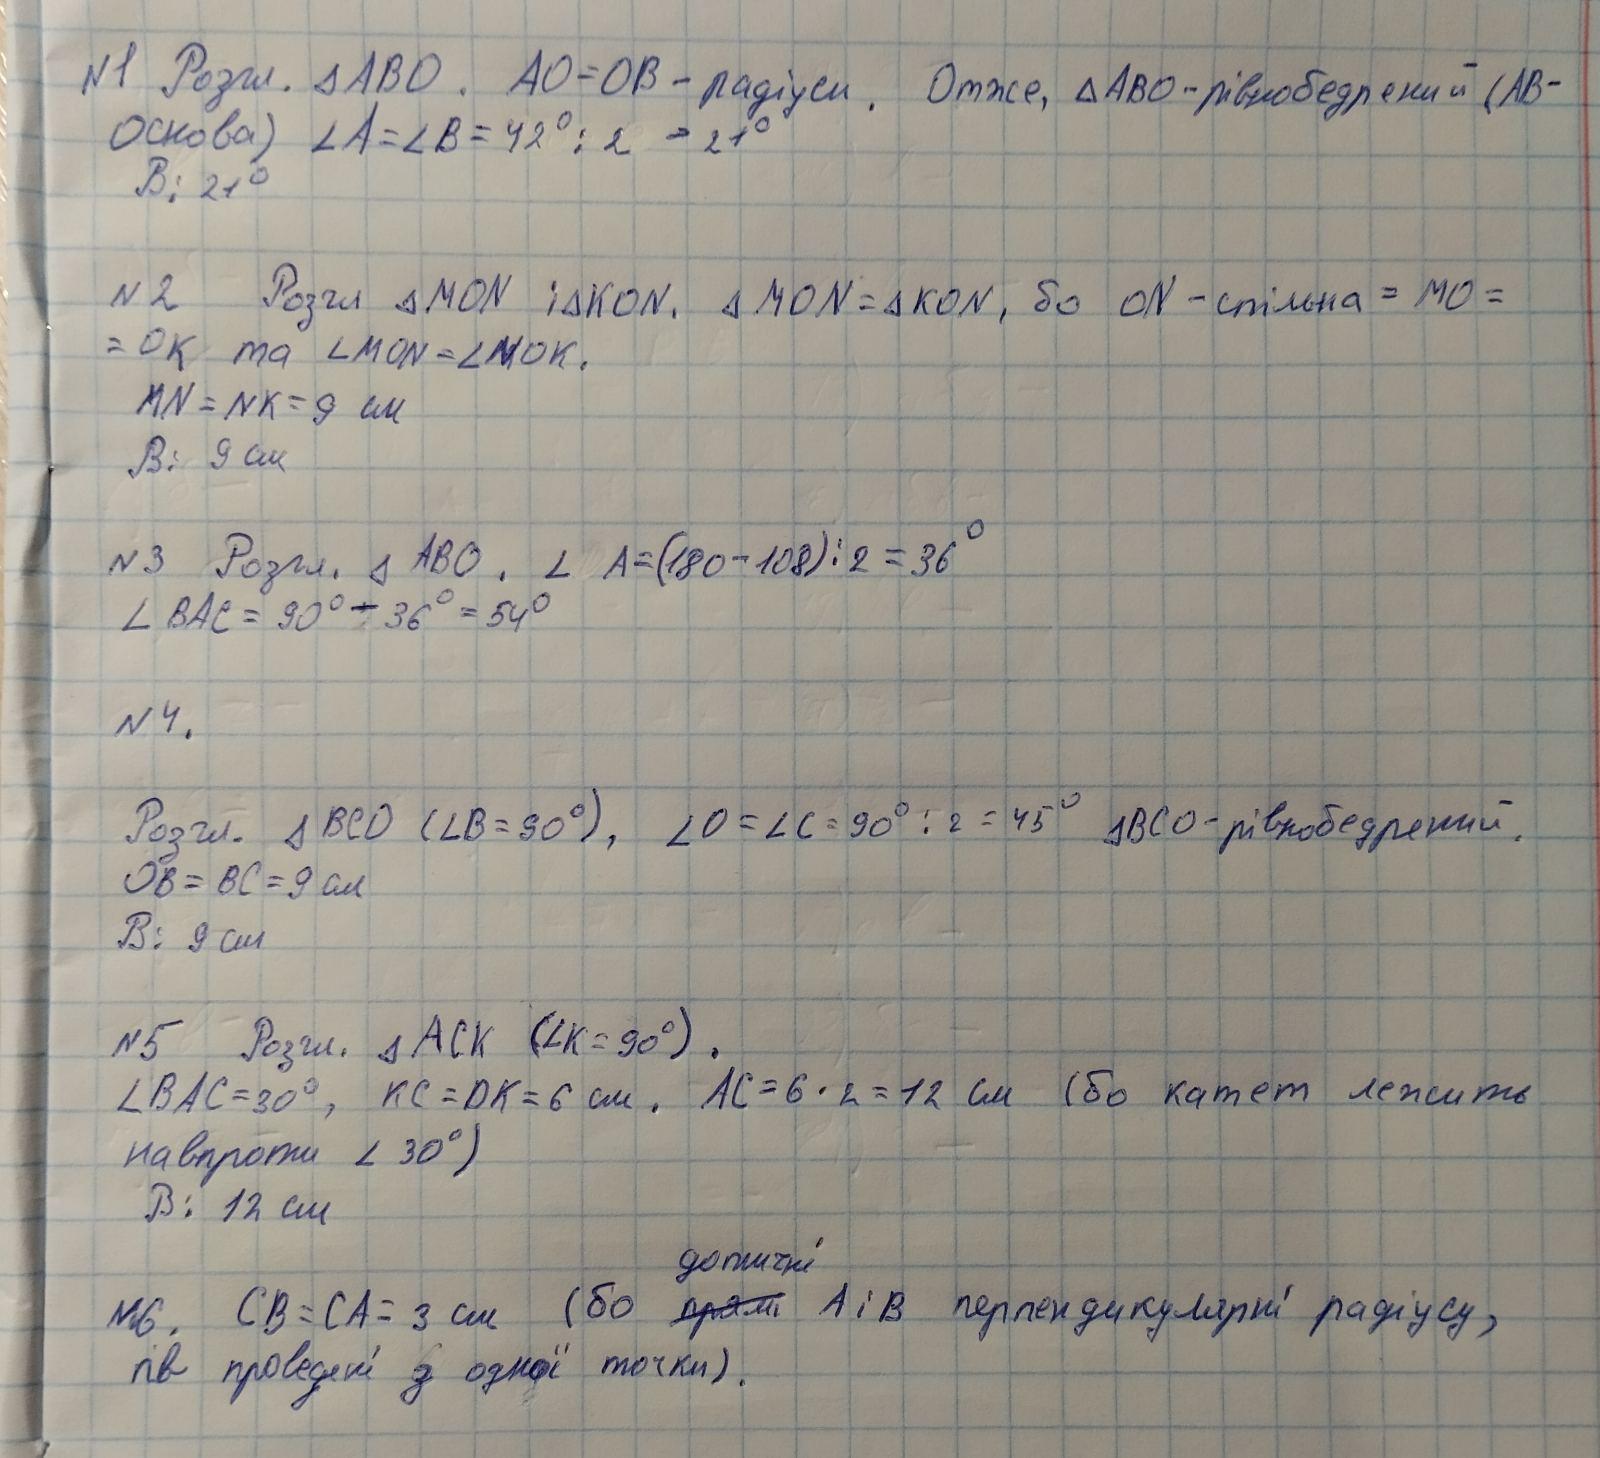 N1 Розгл. △ABO. AO=OB - радіуси. Отже, △ABO - рівнобедрений (AB-
основа) ∠A=∠B=42°:2 = 21°
В: 21°
N2 Розгл △MON і △KON. △MON=△KON, бо ON - спільна = MO=
=OK та ∠MON=∠NOK.
MN=NK=9 см
В: 9 см
N3 Розгл. △ABO. ∠ A=(180-108):2=36°
∠BAC=90°-36°=54°
N4.
Розгл. △BCO (∠B=90°), ∠O=∠C=90°:2=45° △BCO - рівнобедрений.
OB=BC=9 см
В: 9 см
N5 Розгл. △ACK (∠K=90°).
∠BAC=30°, KC=DK=6 см. AC=6·2=12 см (бо катет лежить
навпроти ∠30°)
В: 12 см
дотичні
N6. CB=CA=3 см (бо прямі A і B перпендикулярні радіусу,
проведені з одної точки).